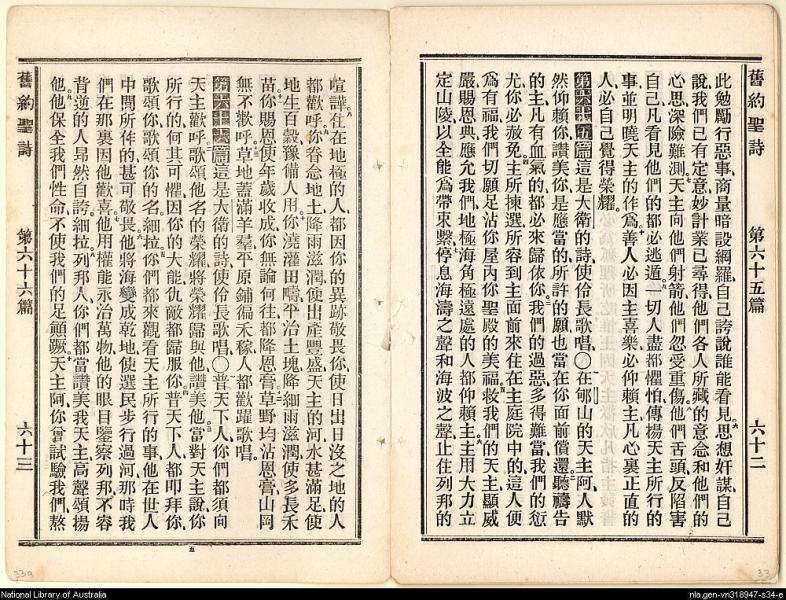 舊約聖詩 第六十五篇 六十二
此勉勵行惡事、商量暗設網羅、自己誇說誰能看見、思想奸謀、自己
說我們已有定意、妙計業已尋得、他們各人所藏的意念、和他們的
心思深險難測、天主向他們射箭、他們忽受重傷、他們舌頭反陷害
自己、凡看見他們的、都必逃遁、一切人盡都懼怕、傳揚天主所行的
事、並明曉天主的作爲、善人必因主喜樂、必仰賴主、凡心裏正直的
人、必自己覺得榮耀、
第六十五篇 這是大衛的詩、使伶長歌唱、〇在郇山的天主阿、人默
然仰賴你、讚美你是應當的、所許的願也當在你面前償還、聽禱告
的主、凡有血氣的都必來歸依你、我們的過惡多得難當、我們的愆
尤你必赦免、主所揀選所容到主面前來、住在主庭院中的、這人便
爲有福、我們切願足沾你屋內你聖殿的美福、救我們的天主、顯威
嚴賜恩典、應允我們、地極海角極遠處的人、都仰賴主、主用大力立
定山陵、以全能爲帶束繫、停息海濤之聲、和海波之聲、止住列邦的
喧譁、住在地極的人、都因你的異跡敬畏你、使日出日沒之地的人
都歡呼、你眷念地土、降雨滋潤、使出產豐盛、天主的河水甚滿足、使
地生百穀、豫備人用、你澆灌田疇、平治土塊、降細雨滋潤、使多長禾
苗、你賜恩使年歲收成、你無論何往、都降恩膏、草野均沾恩膏、山岡
無不歡呼、草地蓋滿羊羣、平原鋪徧禾稼、人都歡躍歌唱、
第六十六篇 這是大衛的詩、使伶長歌唱、〇普天下人、你們都須向
天主歡呼、歌頌他名的榮耀、將榮耀歸與他、讚美他、當對天主說、你
所行的何其可懼、因你的大能、仇敵都歸服你、普天下人都叩拜你、
歌頌你、歌頌你的名、細拉、你們都來觀看天主所行的事、他在世人
中間所作的、甚可敬畏、他將海變成乾地、使選民步行過河、那時我
們在那裏因他歡喜、他用權能永治萬物、他的眼目鑒察列邦、不容
背逆的人昂然自誇、細拉、列邦人、你們都當讚美我天主、高聲頌揚
他、他保全我們性命、不使我們的足顚蹶、天主阿、你曾試驗我們、熬
舊約聖詩 第六十六篇 六十三
五
33a
33
National Library of Australia
nla.gen-vn318947-s34-e